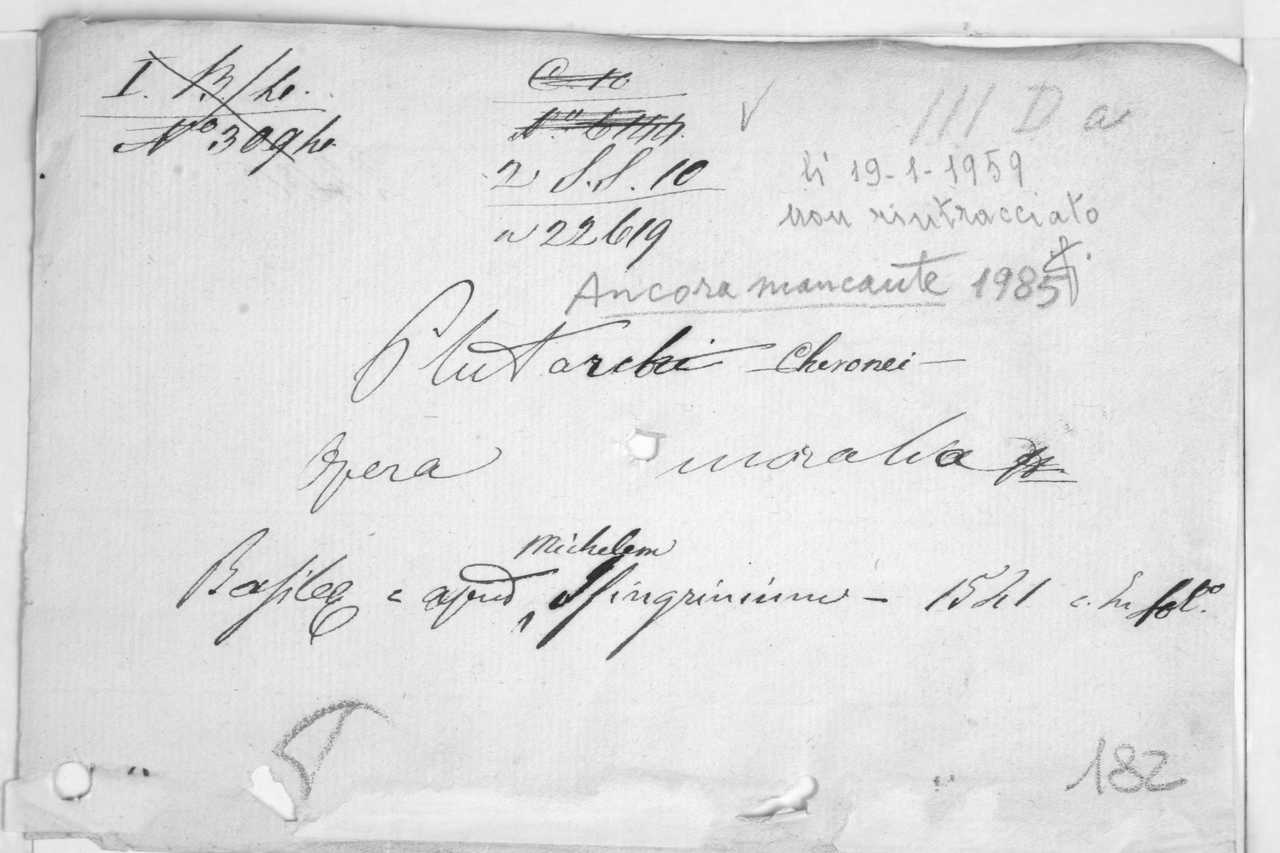 I. B/he.
No 309 he.
C. 10
No 6144.
2 S.S. 10
n 22619
V
III D a
lì 19-1-1959
non rintracciato
Ancora mancante 1985
Plutarchi - Cheronei -
Opera moralia
Michelem
Basileę = apud Isingrinium - 1541 = in fol.o
182